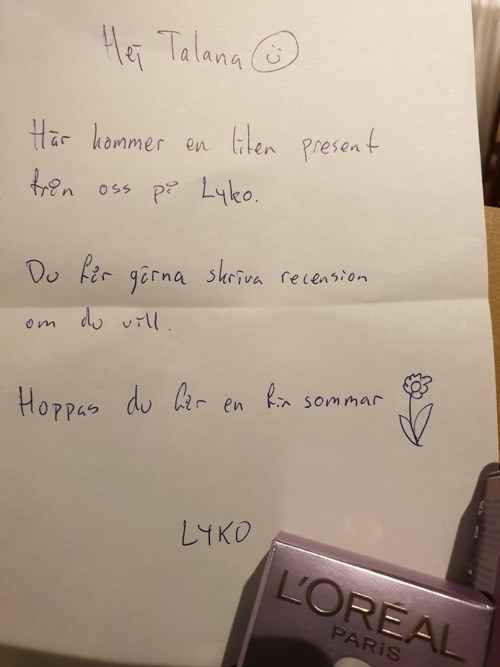 Hej Talana
Här kommer en liten present
från oss på Lyko.
Du får gärna skriva recension
om du vill.
Hoppas du får en fin sommar
LYKO
L'ORÉAL
PARIS